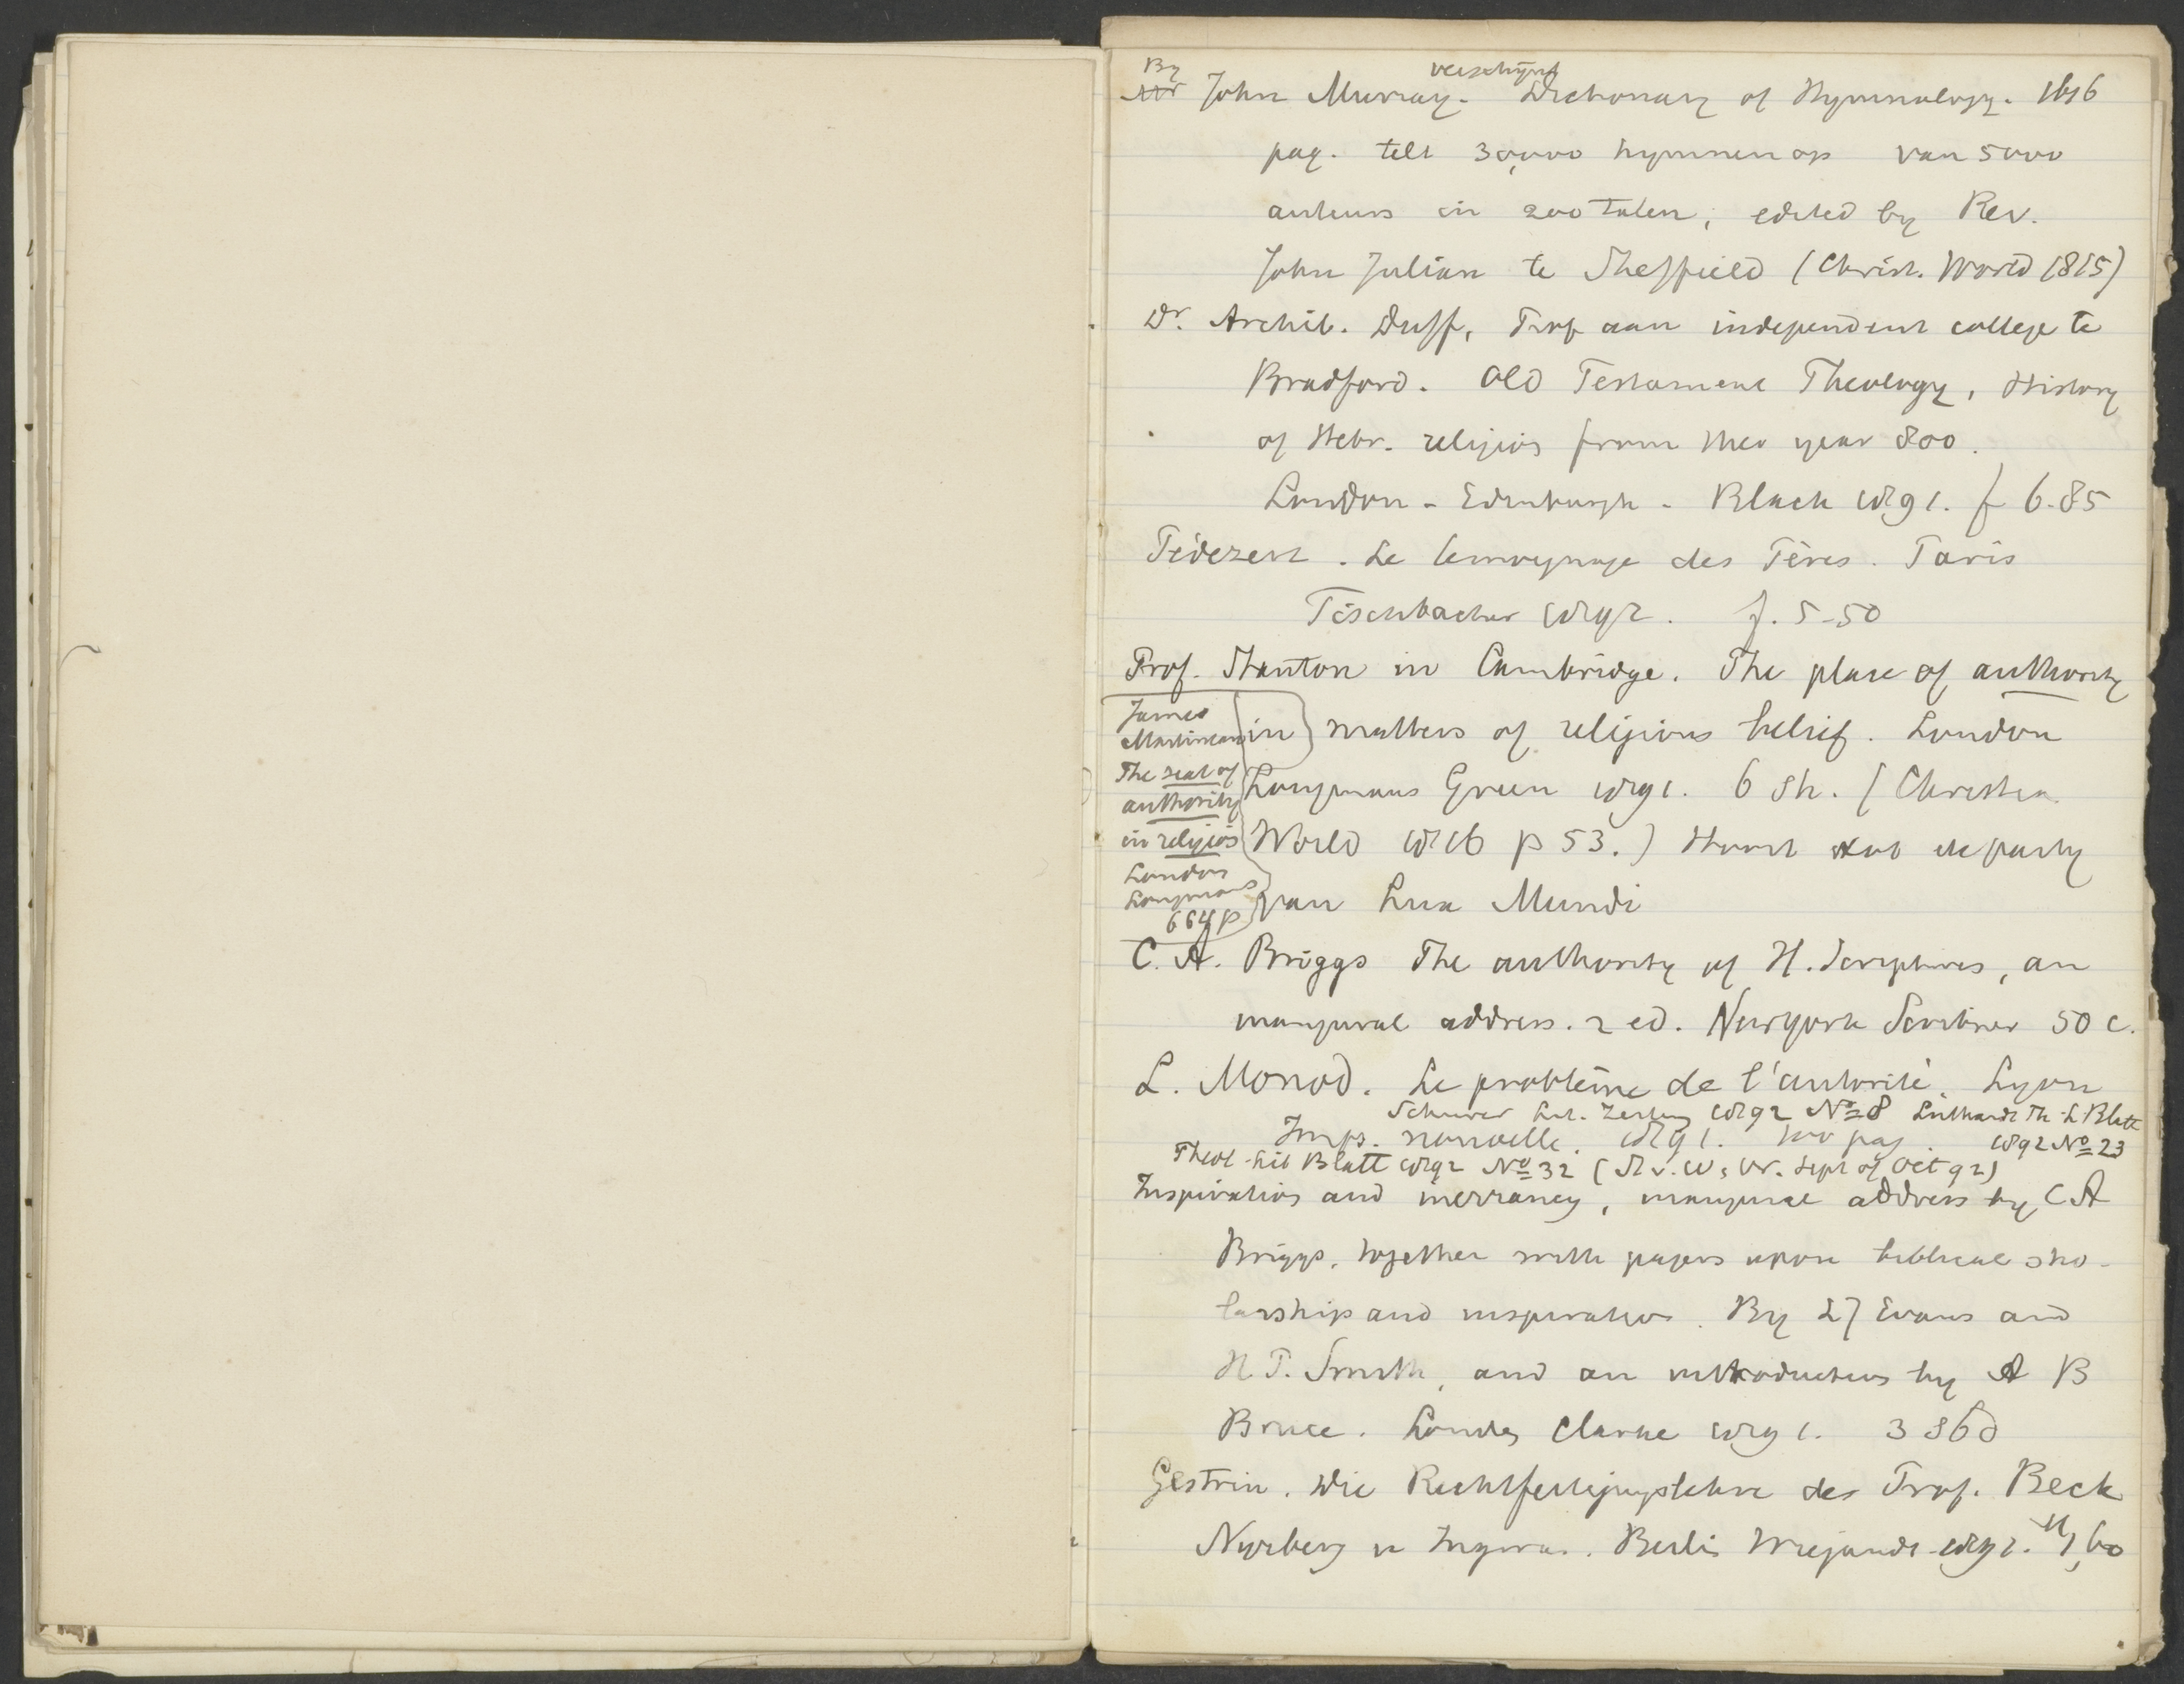 By
Mr John Murray. verschijnt Dictionary of Hymnology. 1616
pag. telt 30,000 hymnen op van 5000
auteurs in 200 talen, edited by Rev.
John Julian te Sheffield (Christ. World 1815)
Dr. Archib. Duff, Prof aan independent college te
Bradford. Old Testament Theology, History
of Hebr. religion from the year 800.
London - Edinburgh - Black 1891. f 6.85
Le temoignage des Pères. Paris
Fischbacher 1892. f. 5-50
Prof. Stanton in Cambridge. The place of authority
in matters of religious belief. London
Longmans Green 1891. 6 sh. (Christian
World p 53.) Hoort tot de party
van Lux Mundi
James
Martineau
The seat of
authority
in religion
London
Longmans
664 p
C. A. Briggs The authority of H. Scriptures, an
inaugural address. 2 ed. Newyork Scribner 50 c.
L. Monod. Le problème de l'autorité. Lyon
Schurer Lit. Zeitung 1892 No 8 Luthardt Th. L Blatt
1892 No 23
Imp. nouvelle. 1891. 100 pag.
Theol. Lit Blatt 1892 No 32 Sept of Oct 92)
Inspiration and inerrancy, inaugural address by C A
Briggs, together with papers upon biblical scho-
larship and inspiration. By L J Evans and
H. P. Smith, and an introduction by A B
Bruce. London Clarke 1891. 3 s 6 d
Gestrin. Die Rechtfertigungslehre der Prof. Beck
Berlin Wiegandt M 1,60